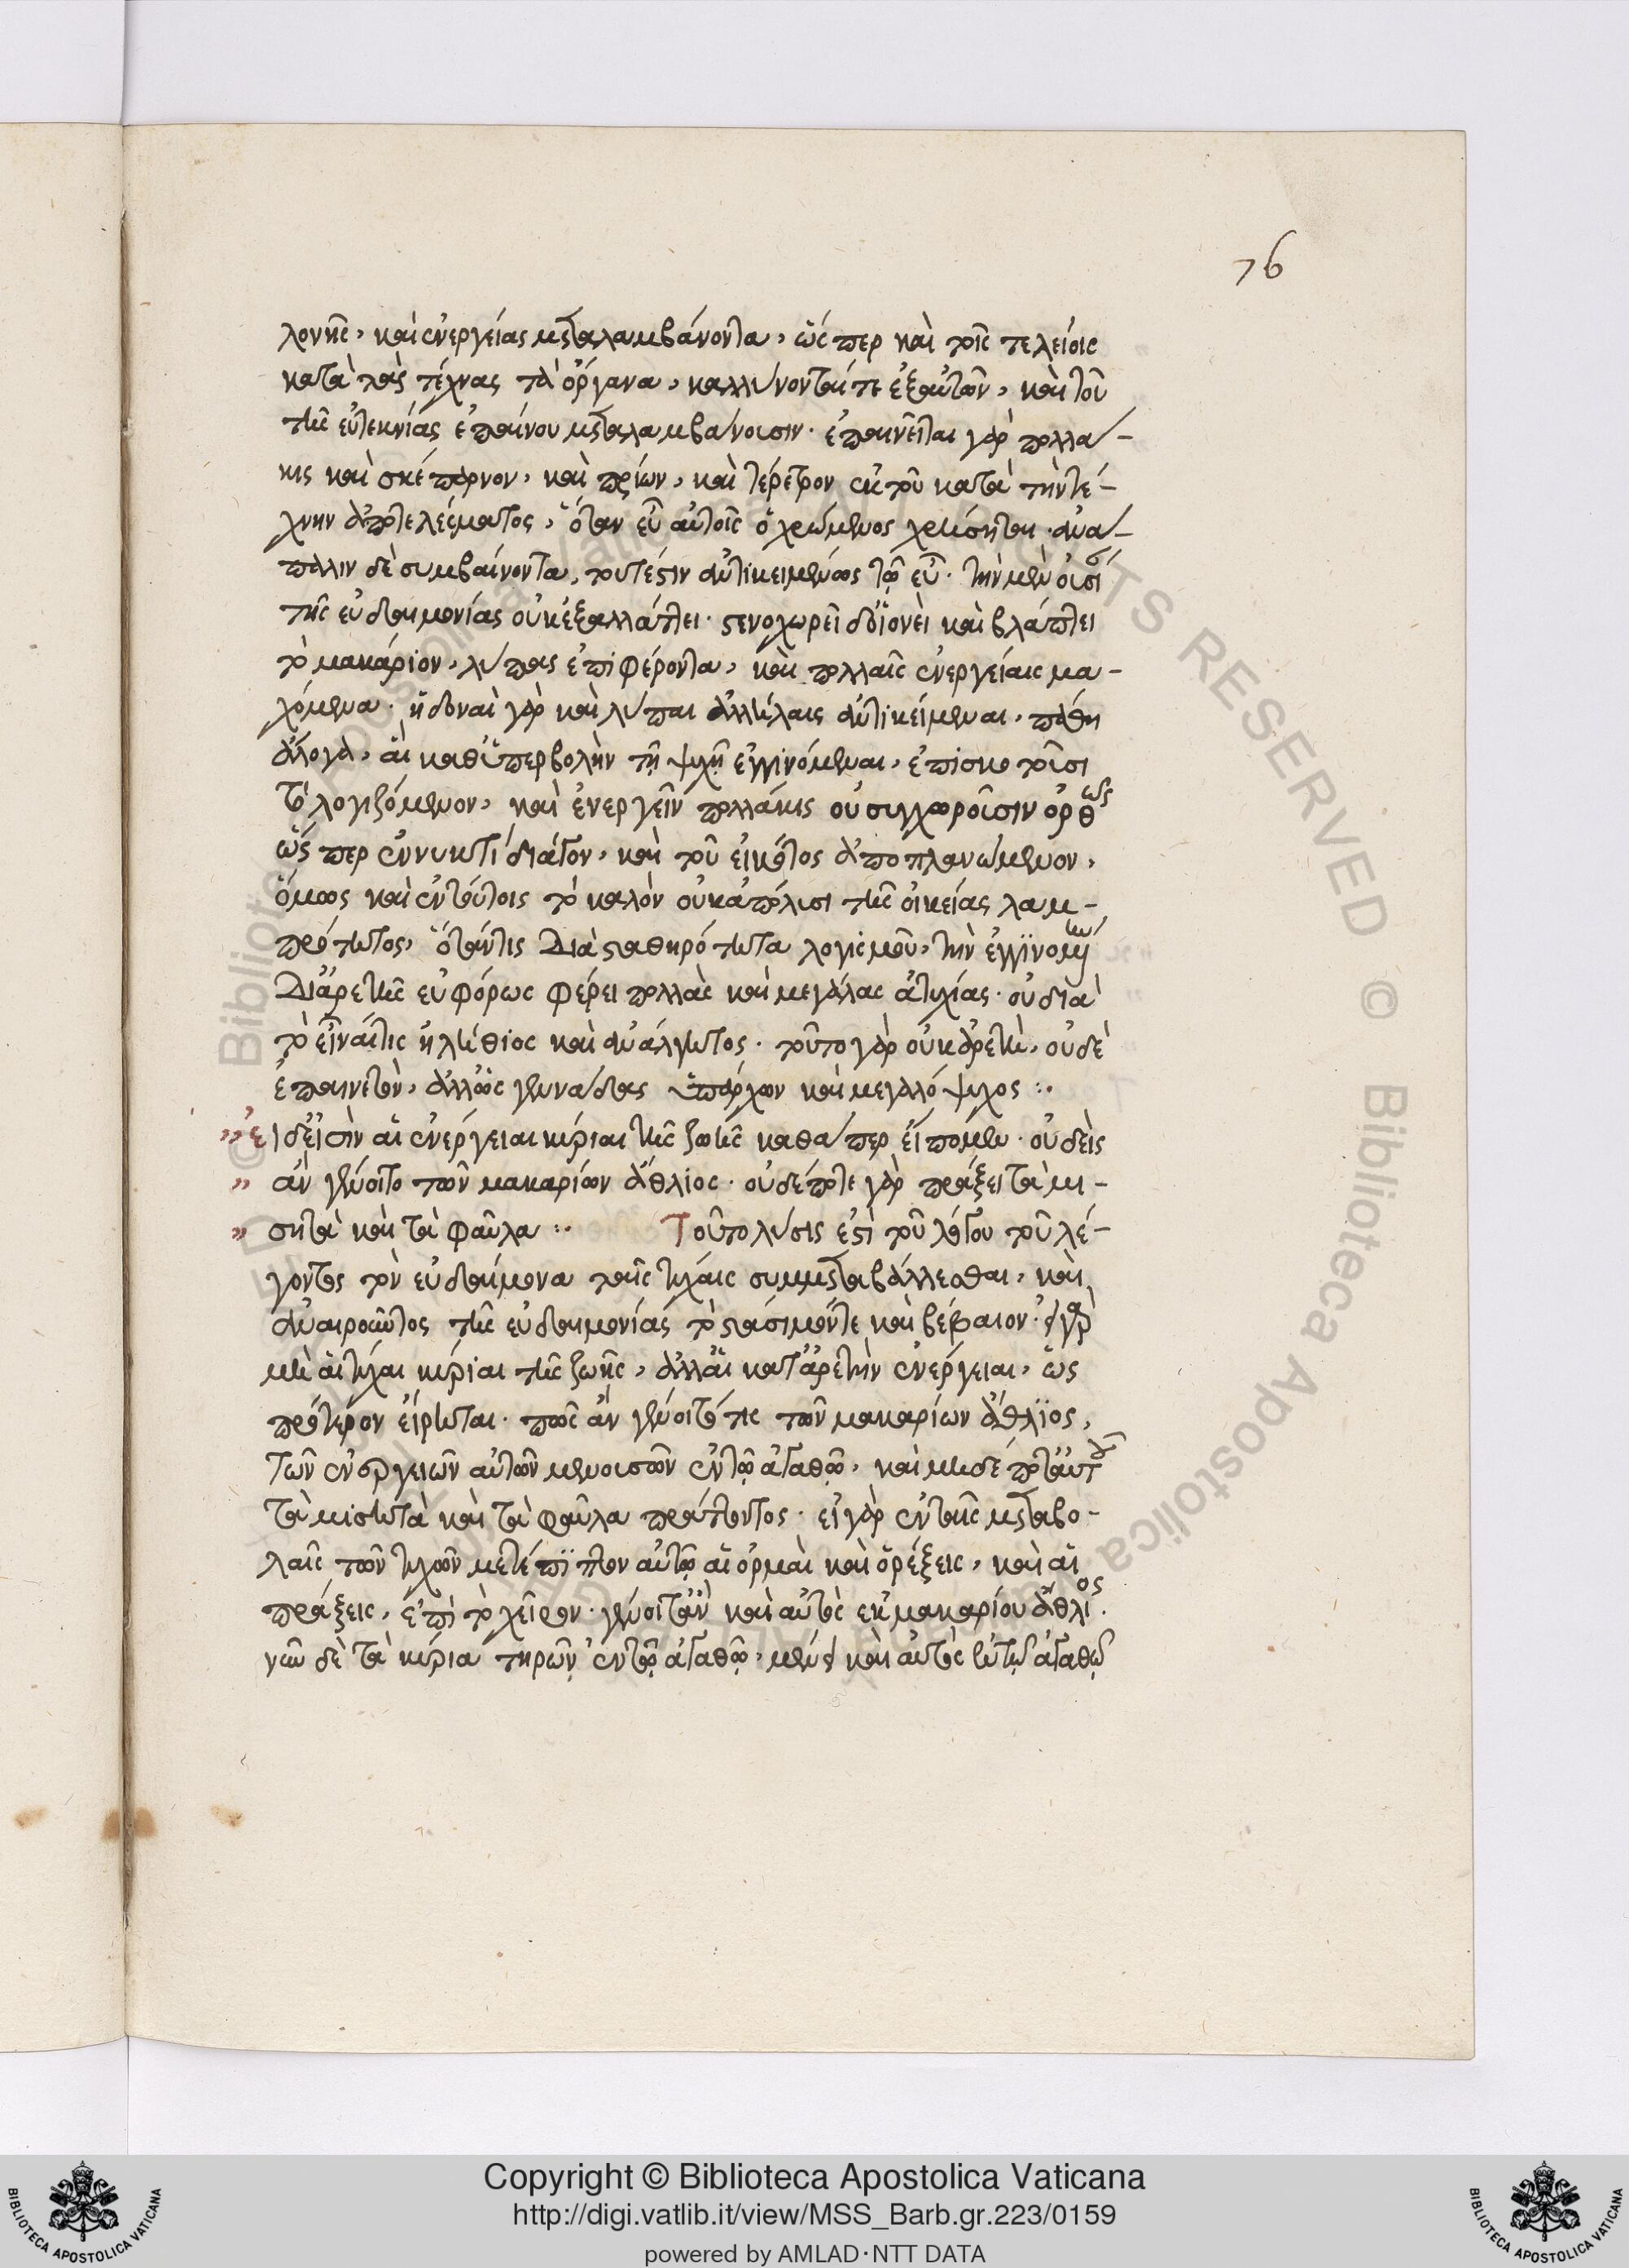 76
λουκῆς, καὶ ἐνεργείας μεταλαμβάνοντα, ὥσπερ καὶ τοῖς τελείοις
κατὰ τὰς τέχνας τὰ ὄργανα, καλλύνονταί τε ἐξ αὐτῶν, καὶ τοῦ
τῆς εὐτεκνίας ἐπαίνου μεταλαμβάνουσιν· ἐπαινεῖται γὰρ πολλά-
κις καὶ σκέπαρνον, καὶ πρίων, καὶ τέρετρον ἐκ τοῦ κατὰ τὴν τέ-
χνην ἀποτελέσματος, ὅταν εὖ αὐτοῖς ὁ χρώμενος χρήσηται· ἀνά-
παλιν δὲ συμβαίνοντα, τουτέστιν ἀντικειμένως τῷ εὖ· τὴν μὲν οὐσί
τῆς εὐδαιμονίας οὐκ ἐξαλλάττει· στενοχωρεῖ δ' οἱονεὶ καὶ βλάπτει
τὸ μακάριον, λύπας ἐπιφέροντα, καὶ πολλαῖς ἐνεργείαις μα-
χόμενα· ἡδοναὶ γὰρ καὶ λύπαι ἀλλήλαις ἀντικείμεναι, πάθη
ἄλογα, αἳ καθ' ὑπερβολὴν τῇ ψυχῇ ἐγγινόμεναι, ἐπισκοτοῦσι
τὸ λογιζόμενον, καὶ ἐνεργεῖν πολλάκις οὐ συγχωροῦσιν ὀρθῶς
ὥσπερ ἐν νυκτὶ διάγον, καὶ τοῦ εἰκότος ἀποπλανώμενον,
ὅμως καὶ ἐν τούτοις τὸ καλὸν οὐκ ἀπόλλυσι τῆς οἰκείας λαμ-
πρότητος, ὅταν τις διὰ σταθηρότητα λογισμοῦ, τὴν ἐγγινομένην
δι' ἀρετῆς εὐφόρως φέρει πολλὰς καὶ μεγάλας ἀτυχίας· οὐ διὰ
τὸ εἶναί τις ἠλίθιος καὶ ἀνάλγητος· τοῦτο γὰρ οὐκ ἀρετὴ, οὐδὲ
ἐπαινετὸν, ἀλλ' ὡς γεννάδας ὑπάρχων καὶ μεγαλόψυχος :·
" εἰ δέ εἰσιν αἱ ἐνέργειαι κύριαι τῆς ζωῆς καθάπερ εἴπομεν· οὐδεὶς
" ἂν γένοιτο τῶν μακαρίων ἄθλιος· οὐδέποτε γὰρ πράξει τὰ μι-
" σητὰ καὶ τὰ φαῦλα :· Τοῦτο λύσις ἐστὶ τοῦ λόγου τοῦ λέ-
γοντος τὸν εὐδαίμονα ταῖς τύχαις συμμεταβάλλεσθαι, καὶ
ἀναιροῦντος τῆς εὐδαιμονίας τὸ στάσιμόν τε καὶ βέβαιον· εἰ γὰρ
μὴ αἱ τύχαι κύριαι τῆς ζωῆς, ἀλλ' αἱ κατ' ἀρετὴν ἐνέργειαι, ὡς
πρότερον εἴρηται· πῶς ἂν γένοιτό τις τῶν μακαρίων ἄθλιος,
τῶν ἐνεργειῶν αὐτῶν μενουσῶν ἐν τῷ ἀγαθῷ, καὶ μηδέποτ' αὐτοῦ
τὰ μισητὰ καὶ τὰ φαῦλα πράττοντος· εἰ γὰρ ἐν ταῖς μεταβο-
λαῖς τῶν τυχῶν μετέπιπτον αὐτῷ αἱ ὁρμαὶ καὶ ὀρέξεις, καὶ αἱ
πράξεις, ἐπὶ τὸ χεῖρον· γένοιτ' ἂν καὶ αὐτὸς ἐκ μακαρίου ἄθλιος·
νῦν δὲ τὰ κύρια τηρῶν ἐν τῷ ἀγαθῷ, μένει καὶ αὐτὸς ἐν τῷ ἀγαθῷ
Copyright © Biblioteca Apostolica Vaticana
http://digi.vatlib.it/view/MSS_Barb.gr.223/0159
powered by AMLAD·NTT DATA